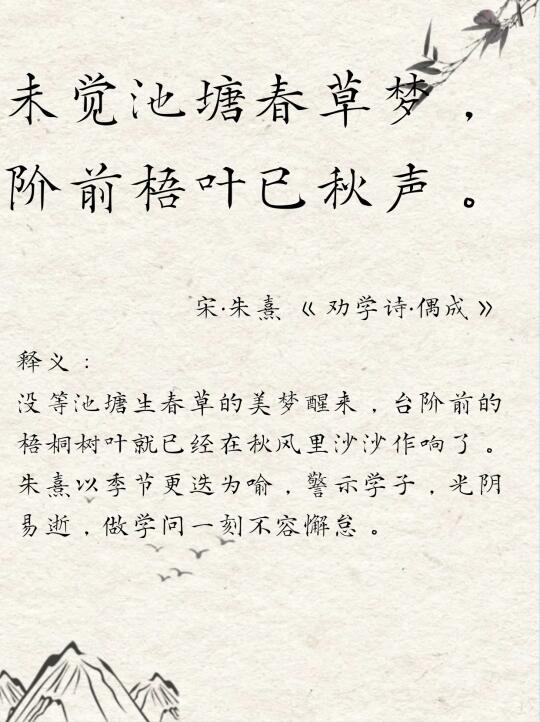 未觉池塘春草梦，
阶前梧叶已秋声。
宋·朱熹《劝学诗·偶成》
释义：
没等池塘生春草的美梦醒来，台阶前的
梧桐树叶就已经在秋风里沙沙作响了。
朱熹以季节更迭为喻，警示学子，光阴
易逝，做学问一刻不容懈怠。